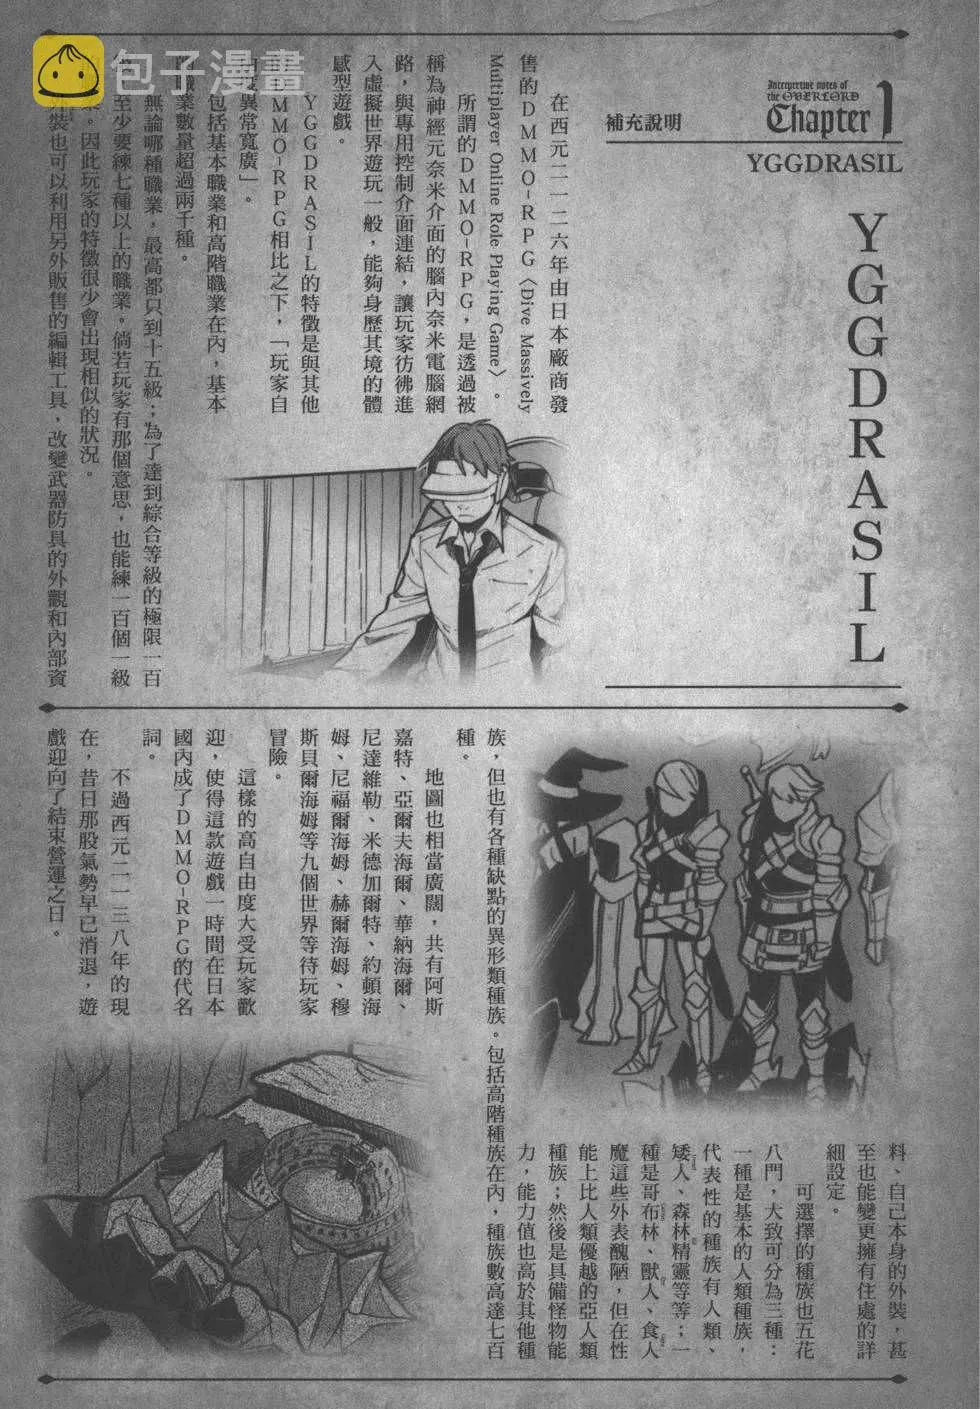 包子漫畫
Interpretive notes of
the OVERLORD
Chapter 1
補充說明
YGGDRASIL
YGGDRASIL
在西元二一二六年由日本廠商發
售的DMMO-RPG〈Dive Massively
Multiplayer Online Role Playing Game〉。
所謂的DMMO-RPG，是透過被
稱為神經元奈米介面的腦內奈米電腦網
路，與專用控制介面連結，讓玩家彷彿進
入虛擬世界遊玩一般，能夠身歷其境的體
感型遊戲。
YGGDRASIL的特徵是與其他
DMMO-RPG相比之下，「玩家自
由度異常寬廣」。
包括基本職業和高階職業在內，基本
的職業數量超過兩千種。
無論哪種職業，最高都只到十五級；為了達到綜合等級的極限一百
至少要練七種以上的職業。倘若玩家有那個意思，也能練一百個一級
。因此玩家的特徵很少會出現相似的狀況。
外裝也可以利用另外販售的編輯工具，改變武器防具的外觀和內部資
料、自己本身的外裝，甚
至也能變更擁有住處的詳
細設定。
可選擇的種族也五花
八門，大致可分為三種：
一種是基本的人類種族，
代表性的種族有人類、
矮人、森林精靈等等；一
種是哥布林、獸人、食人
魔這些外表醜陋，但在性
能上比人類優越的亞人類
種族；然後是具備怪物能
力，能力值也高於其他種
族，但也有各種缺點的異形類種族。包括高階種族在內，種族數高達七百
種。
地圖也相當廣闊，共有阿斯
嘉特、亞爾夫海爾、華納海爾、
尼達維勒、米德加爾特、約頓海
姆、尼福爾海姆、赫爾海姆、穆
斯貝爾海姆等九個世界等待玩家
冒險。
這樣的高自由度大受玩家歡
迎，使得這款遊戲一時間在日本
國內成了DMMO-RPG的代名
詞。
不過西元二一三八年的現
在，昔日那股氣勢早已消退，遊
戲迎向了結束營運之日。